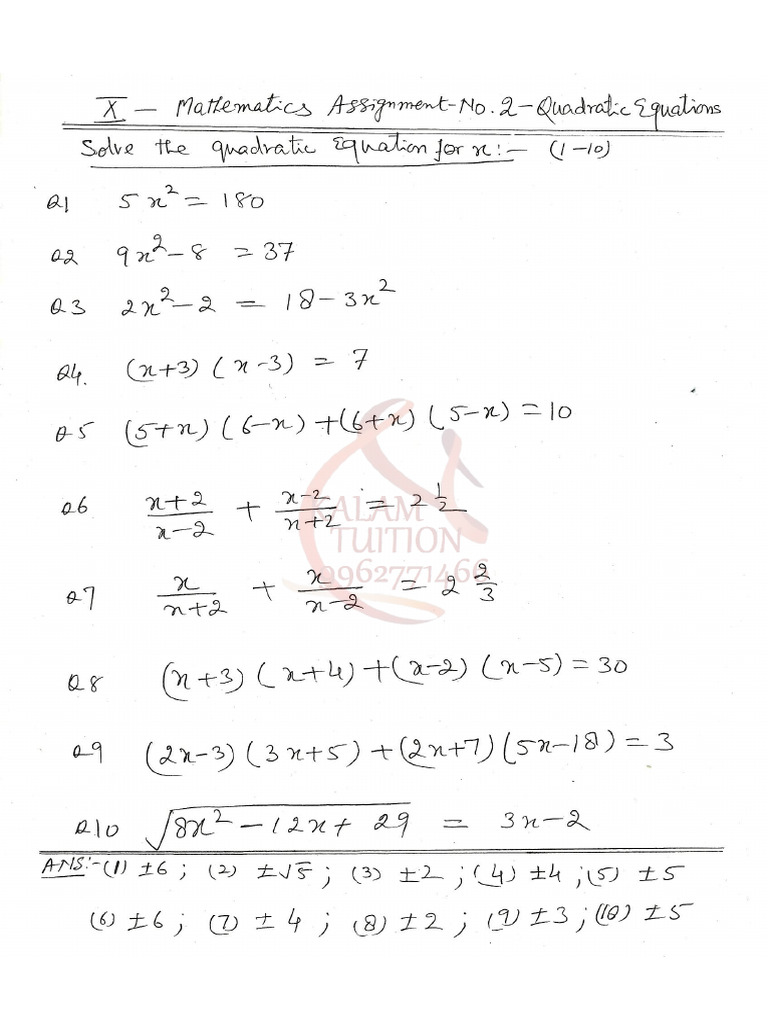 X — Mathematics Assignment-No. 2 - Quadratic Equations
Solve the quadratic Equation for x:- (1-10)
Q1 5x² = 180
Q2 9x² - 8 = 37
Q3 2x² - 2 = 18 - 3x²
Q4. (x+3) (x-3) = 7
Q5 (5+x) (6-x) + (6+x) (5-x) = 10
Q6 (x+2)/(x-2) + (x-2)/(x+2) = 2 1/2
Q7 x/(x+2) + x/(x-2) = 2 2/3
Q8 (x+3) (x+4) + (x-2) (x-5) = 30
Q9 (2x-3) (3x+5) + (2x+7) (5x-18) = 3
Q10 √(8x² - 12x + 29) = 3x - 2
ANS:- (1) ±6 ; (2) ±√5 ; (3) ±2 ; (4) ±4 ; (5) ±5
(6) ±6 ; (7) ±4 ; (8) ±2 ; (9) ±3 ; (10) ±5
KALAM
TUITION
9962771466